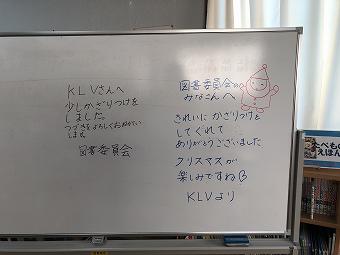 KLVさんへ
少しかざりつけを
しました。
つづきをよろしくおねがい
します
図書委員会
図書委員会の
みなさんへ
きれいに かざりつけを
してくれて
ありがとうございました
クリスマスが
楽しみですねβ
KLVより
たべもの
えほん